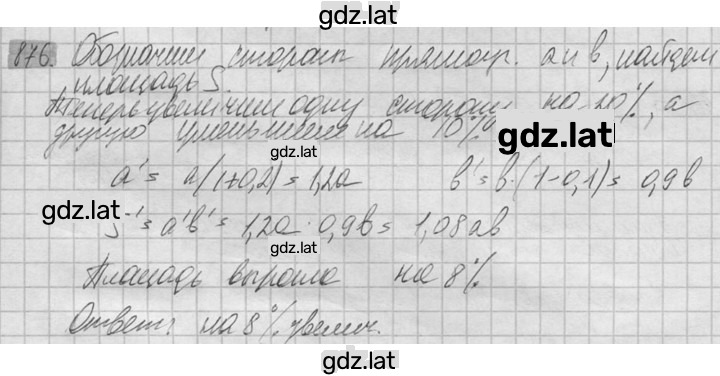 gdz.lat
876. Обозначим стороны прямоуг. a и b, найдем
площадь S.
Теперь увеличим одну сторону на 20%, а
другую уменьшим на 10%
gdz.lat
gdz.lat
a' = a(1+0,2) = 1,2a b' = b·(1-0,1) = 0,9b
gdz.lat
S' = a'b' = 1,2a · 0,9b = 1,08ab
gdz.lat
Площадь выросла на 8%
Ответ: на 8% увелич.
gdz.lat